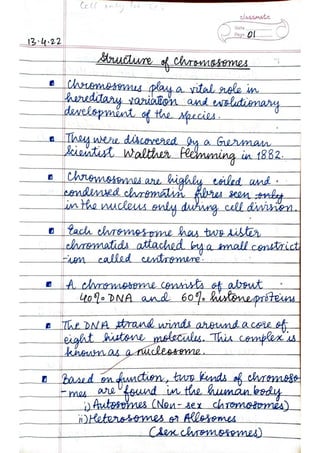 classmate
Date
Page 01
13.4.22
Structure of Chromosomes
Chromosomes play a vital role in
hereditary variation and evolutionary
development of the species.
They were discovered by a German
scientist Walther Flemming in 1882.
Chromosomes are highly coiled and
condensed chromatin fibres seen only
in the nucleus only during cell division.
Each chromosome has two sister
chromatids attached by a small constrict
-ion called centromere.
A chromosome consists of about
40% DNA and 60% histone proteins
The DNA strand winds around a core of
eight histone molecules. This complex is
known as a nucleosome.
Based on function, two kinds of chromoso
-mes are found in the human body
i) Autosomes (Non-sex chromosomes)
ii) Heterosomes or Allosomes
(sex chromosomes)